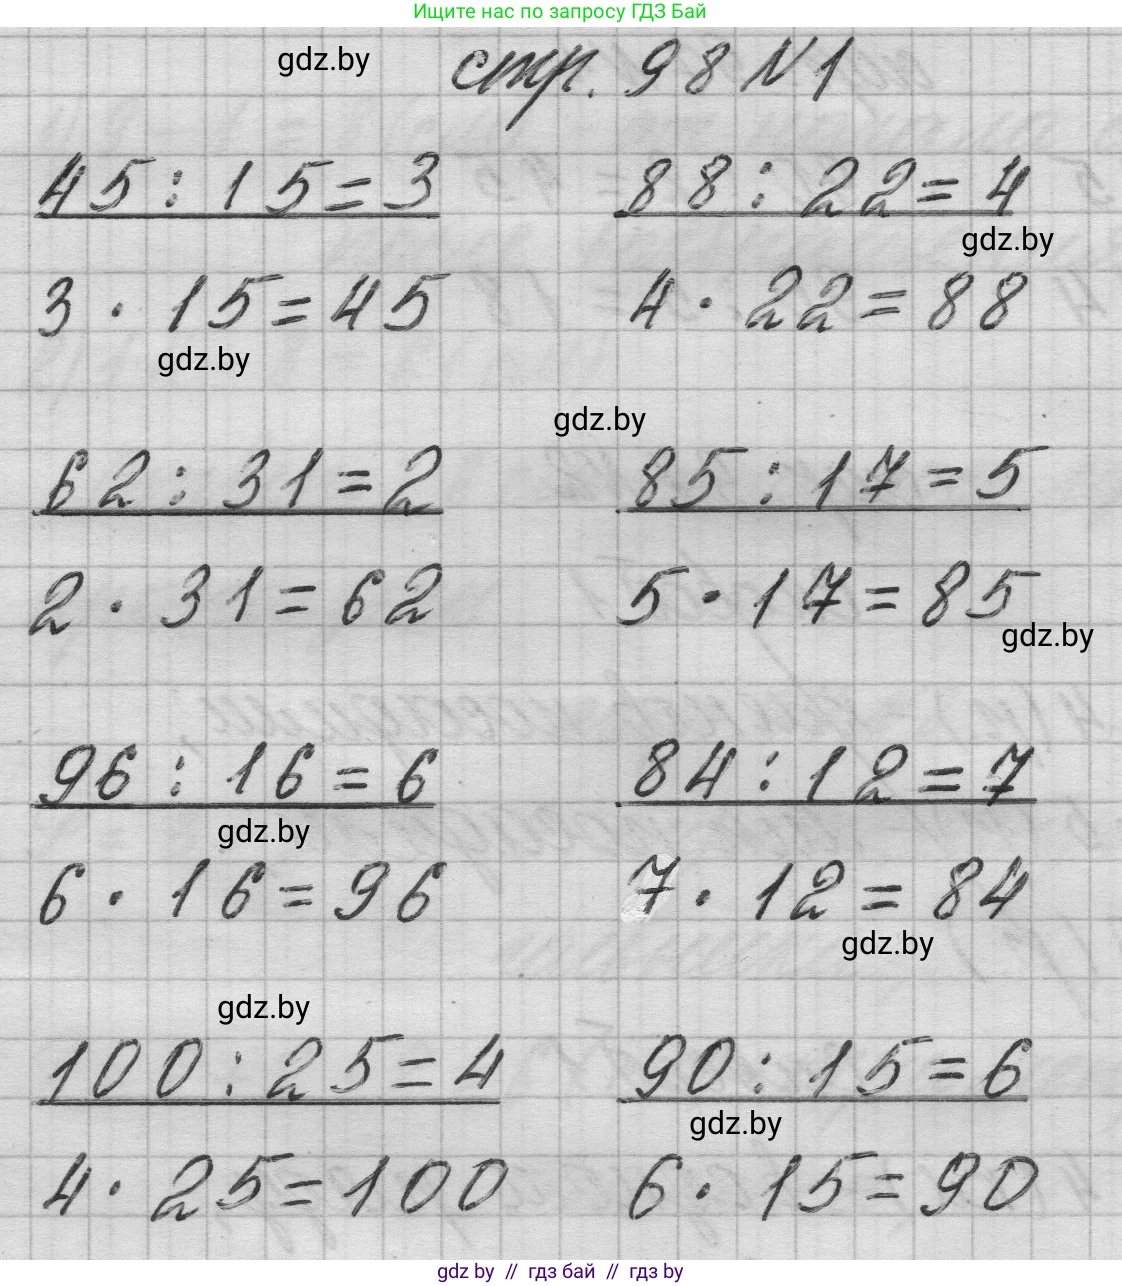 Ищите нас по запросу ГДЗ Бай
gdz.by
стр. 98 №1
45 : 15 = 3
88 : 22 = 4
gdz.by
3 · 15 = 45
4 · 22 = 88
gdz.by
gdz.by
62 : 31 = 2
85 : 17 = 5
2 · 31 = 62
5 · 17 = 85
gdz.by
96 : 16 = 6
84 : 12 = 7
gdz.by
6 · 16 = 96
7 · 12 = 84
gdz.by
gdz.by
100 : 25 = 4
90 : 15 = 6
gdz.by
4 · 25 = 100
6 · 15 = 90
gdz by // гдз бай // гдз by